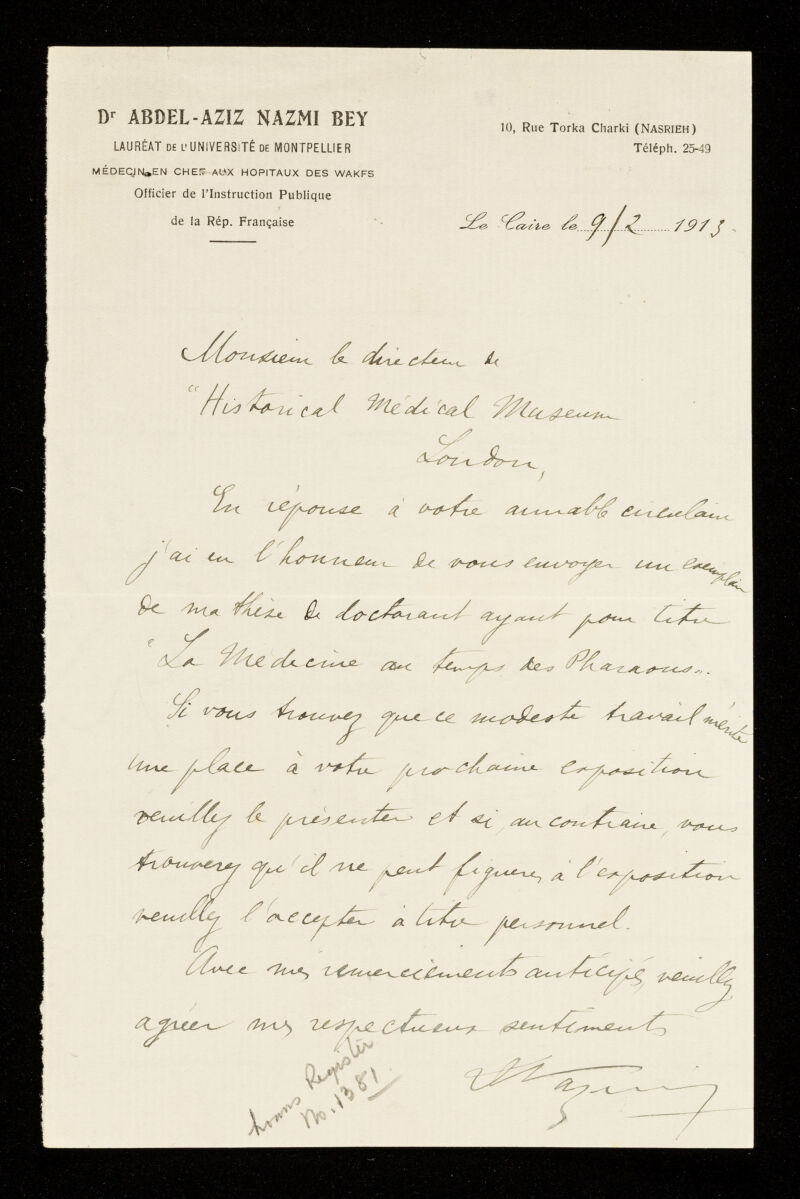 Dr ABDEL-AZIZ NAZMI BEY
LAURÉAT DE L'UNIVERSITÉ DE MONTPELLIER
MÉDECIN EN CHEF AUX HOPITAUX DES WAKFS
Officier de l'Instruction Publique
de la Rép. Française
10, Rue Torka Charki (NASRIEH)
Téléph. 25-49
Le Caire le 9/2 1913
Monsieur le directeur de
"Historical Médical Museum
London,
En réponse à votre aimable circulaire
j'ai eu l'honneur de vous envoyer un exemplaire
de ma thèse de doctorant ayant pour titre
"La Médecine au temps des Pharaons".
Si vous trouvez que ce modeste travail mérite
une place à votre prochaine exposition
veuillez le présenter et si, au contraire, vous
trouverez qu'il ne peut figurer à l'exposition
veuillez l'accepter à titre personnel.
Avec mes remerciements anticipés, veuillez
agréer mes respectueux sentiments
Nazmi
Loans Register
No. 1381